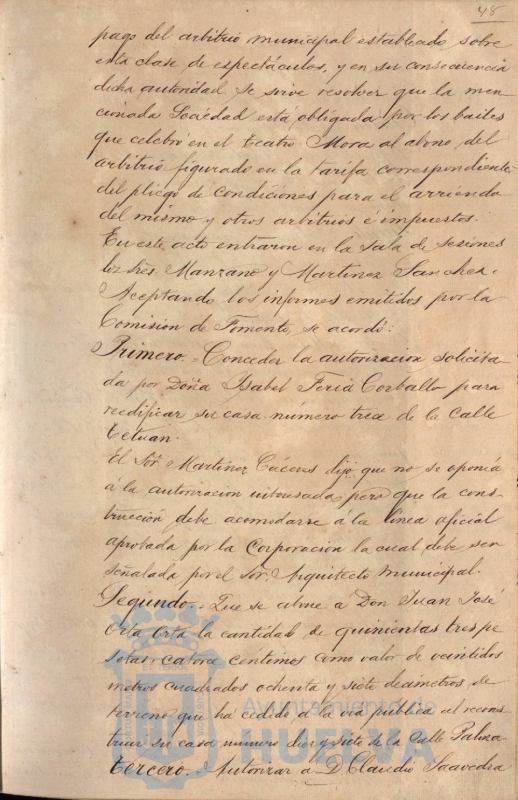 48
pago del arbitrio municipal establecido sobre
esta clase de espectáculos, y en su consecuencia
dicha autoridad se sirve resolver que la men-
cionada Sociedad está obligada por los bailes
que celebró en el teatro Mora al abono del
arbitrio figurado en la tarifa correspondiente
del pliego de condiciones para el arriendo
del mismo y otros arbitrios é impuestos.
En este acto entraron en la sala de sesiones
los Sres. Manzano y Martinez Sanchez.
Aceptando los informes emitidos por la
Comision de Fomento, se acordó:
Primero.- Conceder la autorizacion solicita-
da por Doña Isabel Feria Corballo para
reedificar su casa número trece de la Calle
Tetuan.
El Sor. Martinez Cáceres dijo que no se oponía
á la autorizacion interesada pero que la cons-
trucción debe acomodarse á la línea oficial
aprobada por la Corporacion la cual debe ser
señalada por el Sor. Arquitecto municipal.
Segundo.- Que se abone á Don Juan José
Orta Orta la cantidad de quinientas tres pe-
setas catorce céntimos como valor de veintidos
metros cuadrados ochenta y siete decímetros de
terreno que ha cedido á la via pública al recons-
truir su casa número diez y siete de la Calle Palma
Tercero. Autorizar á D. Claudio Saavedra
Ayuntamiento de
HUELVA